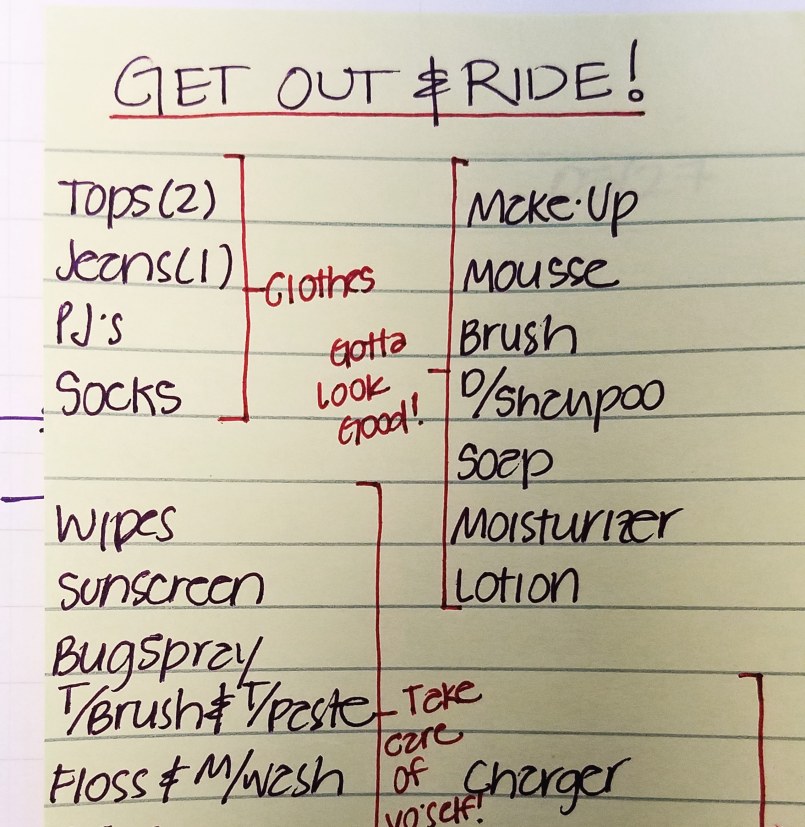 GET OUT & RIDE!
Tops(2)
Jeans(1)
PJ's
Socks
Clothes
Make-Up
Mousse
Brush
D/Shampoo
Soap
Moisturizer
Lotion
Gotta
Look
Good!
Wipes
Sunscreen
Bugspray
T/Brush & T/Paste
Floss & M/Wash
Take
care
of
yo'self!
Charger